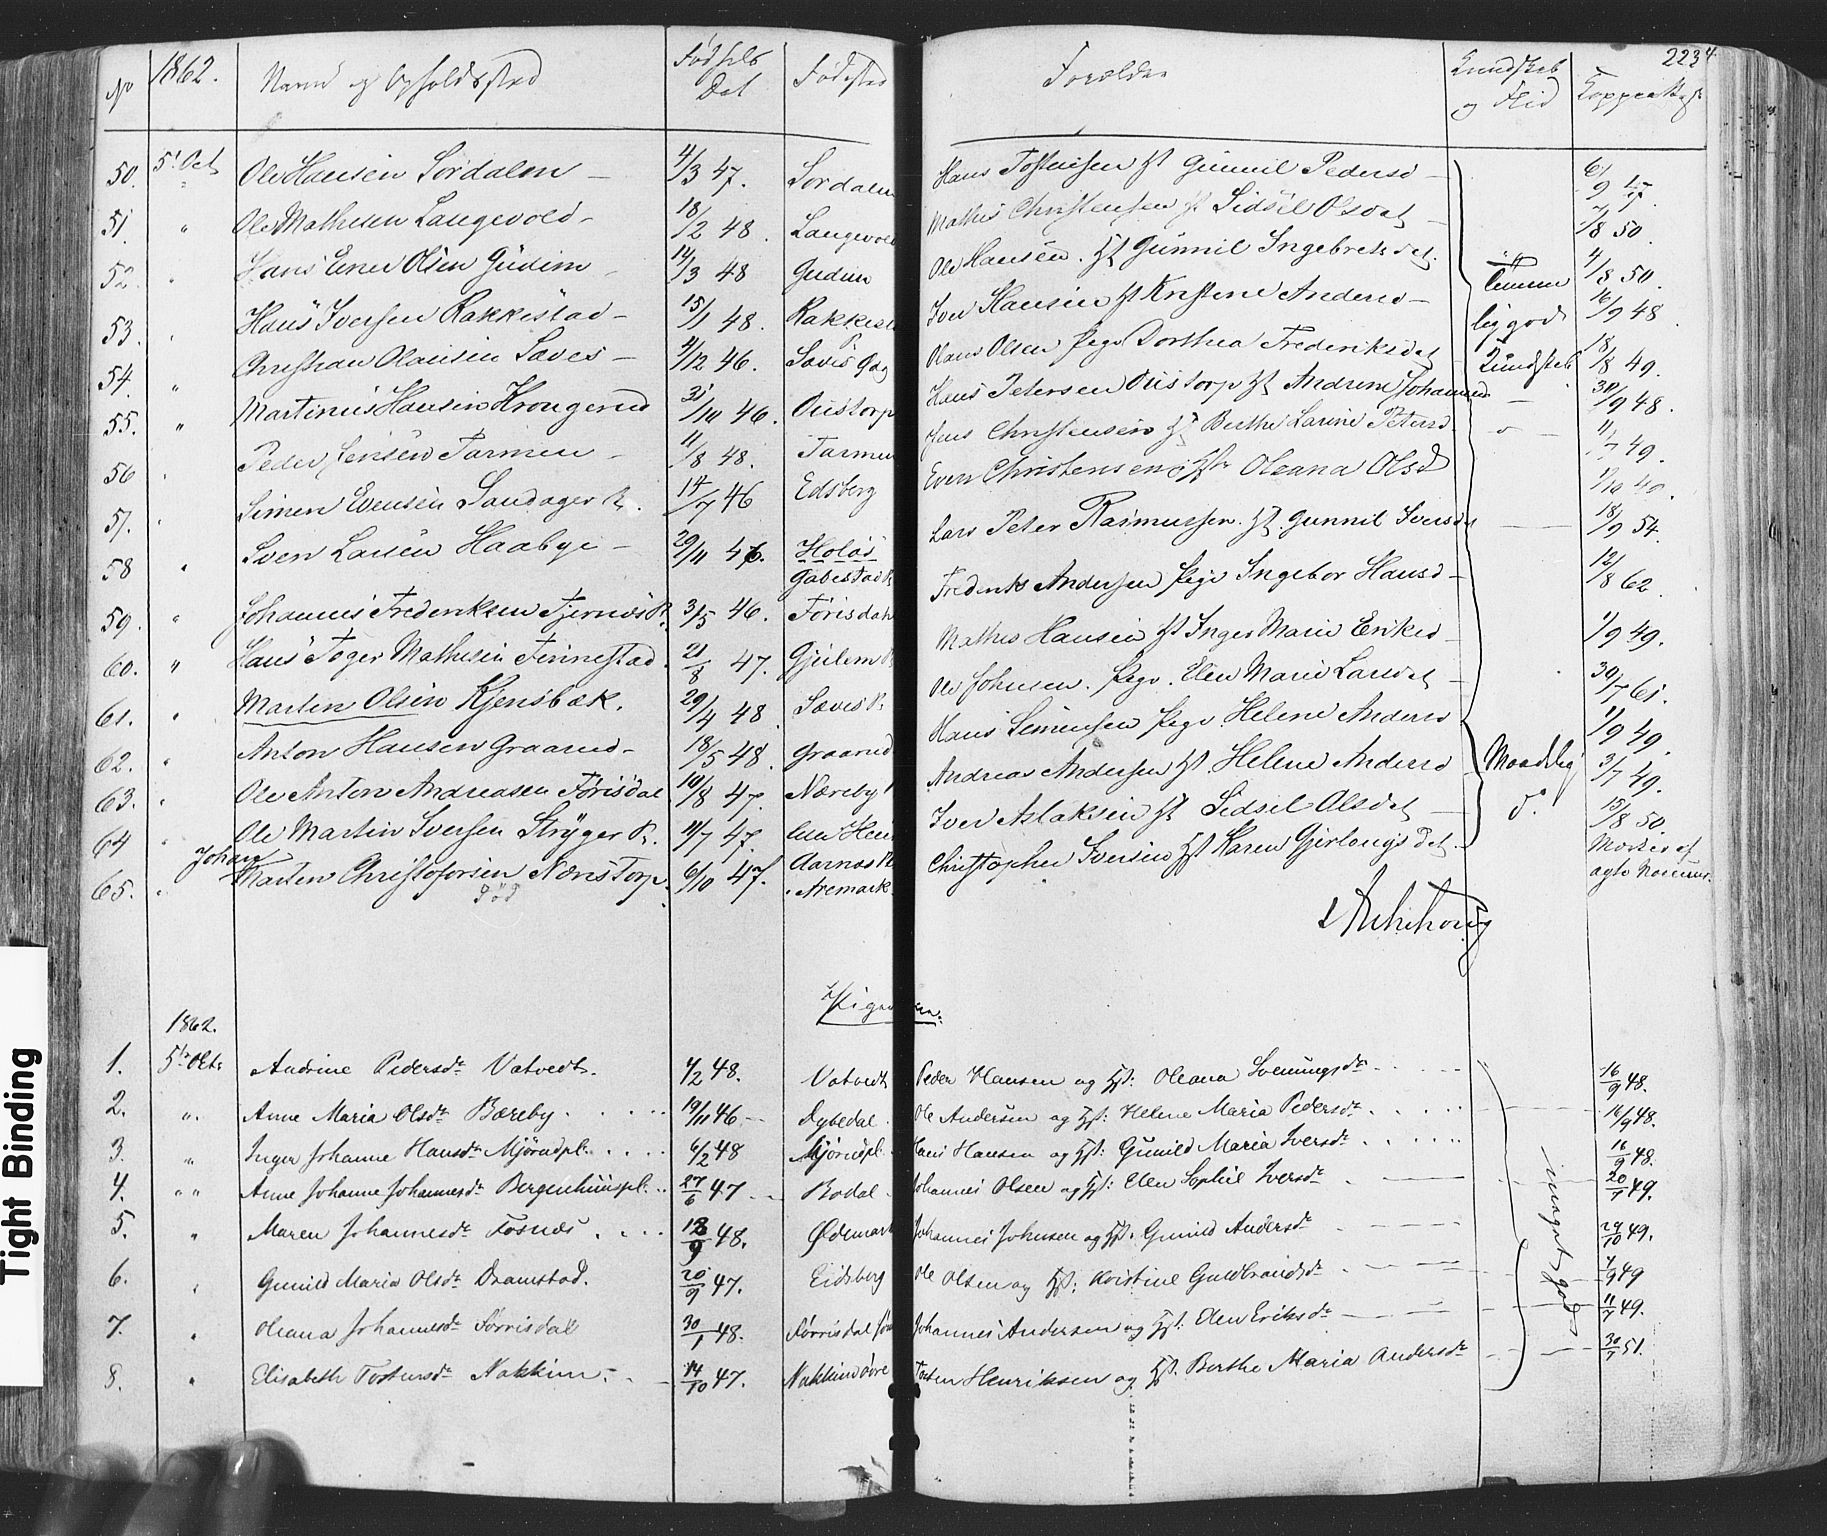 2234
No 1862. Navn og Opholdssted Fødsels Dat Fødested Forældre Kundskab og Flid Koppeattest
50. 5' Oct Ole Hansen Sørdalen – 4/3 47. Sørdalen Hans Tostensen Hst Gunnil Pedersd – 6/9 47.
51. " Ole Mathisen Langevold – 18/2 48. Langevold Mathis Christensen Hst Sidsel Olsdat – /8 50.
52. " Hans Einer Olsen Gudim 14/3 48 Gudim Ole Hansen. Hst Gunnil Ingebretsdat. 4/8 50.
53. " Hans Iversen Rakkestad – 15/1 48. Rakkest Iver Hansen Hst Kristine Andersd – Temme 16/9 48
54. " Christian Olausen Saves – 4/12 46. Saves Olaus Olsen Pige Dorthea Frederiksdat lig god 18/8 49.
55. " Martinus Hansen Krongerud 31/10 46. Oustorp Hans Petersen Oustorp Hst Andrine Johannesd Kundskab 30/9 48.
56 " Peder Jensen Tarmen – 11/8 48. Tarmen Jens Christensen Hst Berthe Larine Petersd 11/7 49.
57. " Simen Evensen Sandager P. 14/7 46 Edsberg Even Christensen Hst Oleana Olsd /10 49.
58 " Sven Larsen Haabye – 29/11 46. Holøs Lars Peter Rasmussen. Hst. Gunnil Svensdat 18/9 54.
59. " Johannes Frederiksen Tjernæs P. 3/5 46. Førisdah Frederik Andersen Pige Ingebor Hansd – 12/8 62
60. " Hans Toger Mathisen Finnestad 21/8 47. Gjeilem P. Mathis Hansen Hst Inger Marie Eriksd – 1/9 49.
61. " Martin Olsen Kjensbæk. 29/4 48 Sæves P. Ole Johnsen. Pige. Elen Marie Larsdat – 30/7 61.
62. " Anton Hansen Graarud – 18/5 48. Graarud Hans Simensen Pige Helene Andersd 1/9 49.
63. " Ole Anton Andreasen Førisdal 10/8 47. Næreby Andreas Andersen Hst. Helene Andersd Maadelig 3/7 49.
64 " Ole Martin Iversen Stryger P. 11/7 47. Iver Aslaksen Hst Sidsel Olsdat – do. 15/8 50.
65. " Johan Martin Christofersen Nærstorp. 6/10 47. Aarnæs P. Aremark Christopher Iversen Hst Karen Gjerlougsdat. Mærker af ægte
Død
Pigerne.
1862.
1. 5te Octr Andrine Pedersdr Vatvedt. 4/2 48. Vatvedt Peder Hansen og Hst: Oleana Svenningsdr 16/9 48.
2. " Anne Maria Olsdr Bæreby 19/11 46 – Dybedal Ole Andersen og Hst: Helene Maria Pedersdr 16/9 48.
3. " Inger Johanne Hansdr Mjørudpl. 6/2 48 Mjørudpl. Hans Hansen og Hst: Gunild Maria Iversdr 16/9 48.
4. " " Anne Johanne Johannesdr Bergenhuuspl. 27/6 47 Bodal Johannes Olsen og Hst: Elen Sophie Iversdr meget god 20/7 49.
5. " Maren Johannesdr Fosnæs 18/9 48. Ødemark Johannes Johnsen og Hst. Gunild Andersdr 24/10 49.
6. " Gunild Maria Olsdr Dramstad. 20/9 47. Eidsberg Ole Olsen og Hst: Kristine Guldbrandsdr 4/9 49
7. " Oleana Johannesdr Sørrisdal 30/1 48. Johannes Andersen og Hst: Elen Eriksdr 11/7 49.
8. " Elisabeth Tostensdr Nakkim 14/10 47. Nakkim Tosten Henriksen og Hst. Berthe Maria Andersdr 30/7 51.
Tight Binding